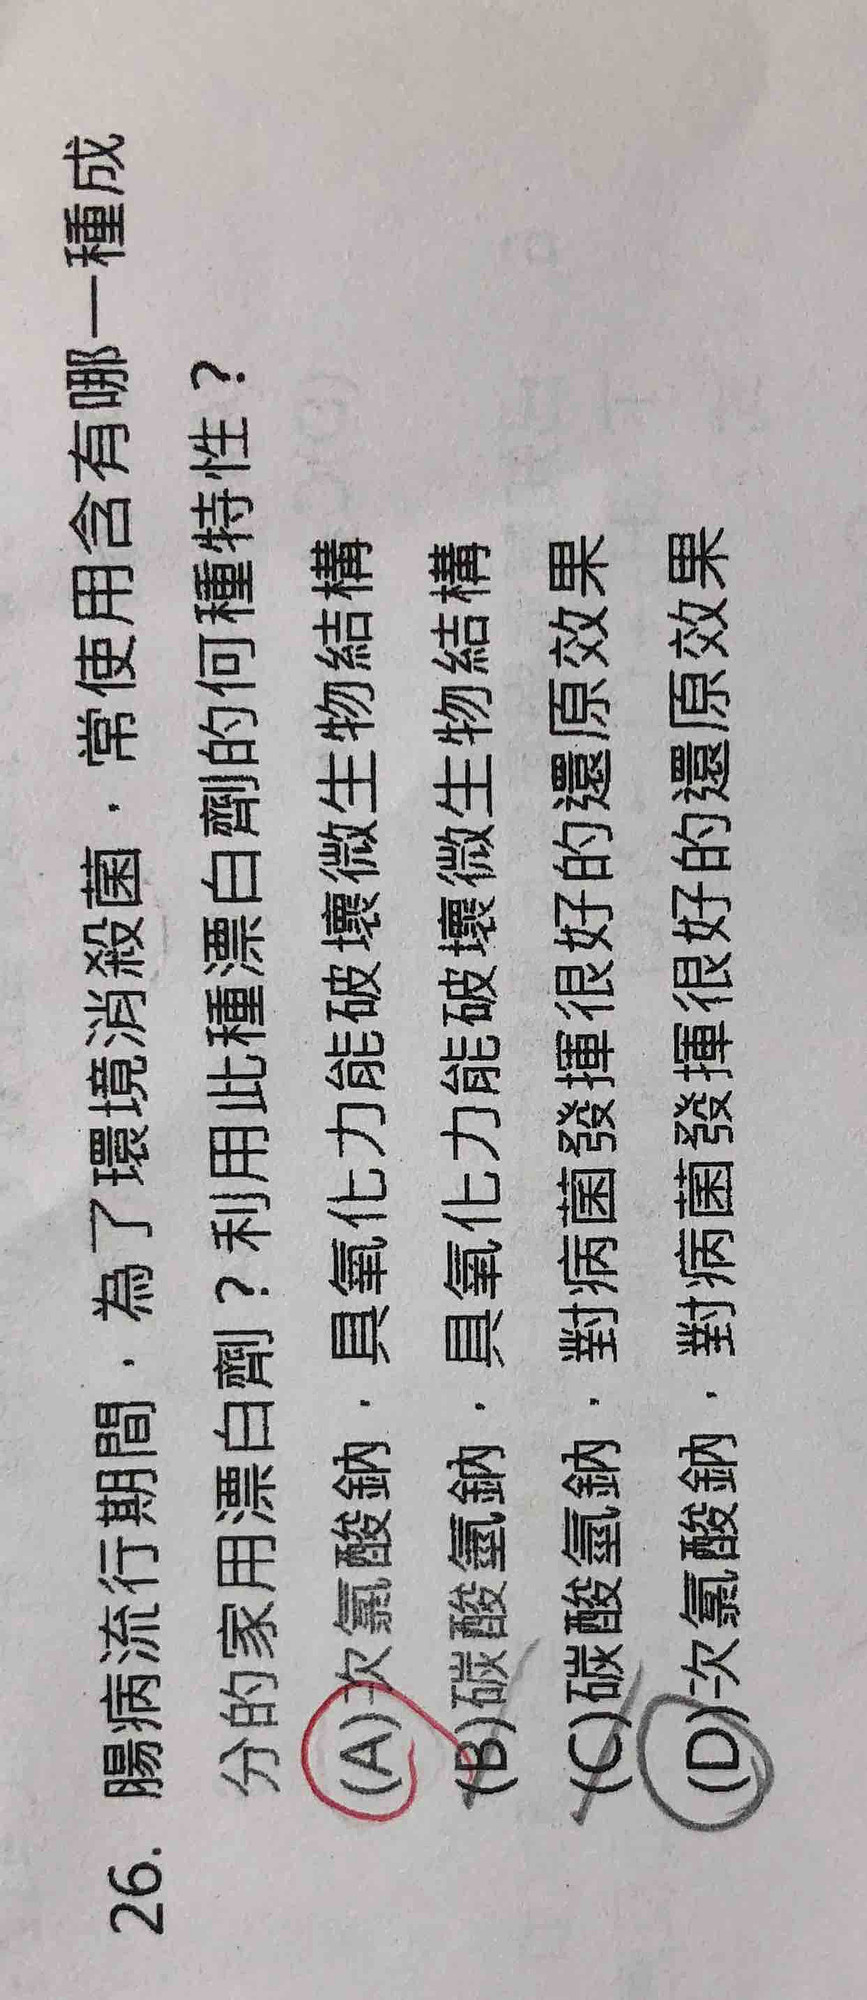 26. 腸病流行期間，為了環境消殺菌，常使用含有哪一種成
分的家用漂白劑？利用此種漂白劑的何種特性？
(A)次氯酸鈉，具氧化力能破壞微生物結構
(B)碳酸氫鈉，具氧化力能破壞微生物結構
(C)碳酸氫鈉，對病菌發揮很好的還原效果
(D)次氯酸鈉，對病菌發揮很好的還原效果